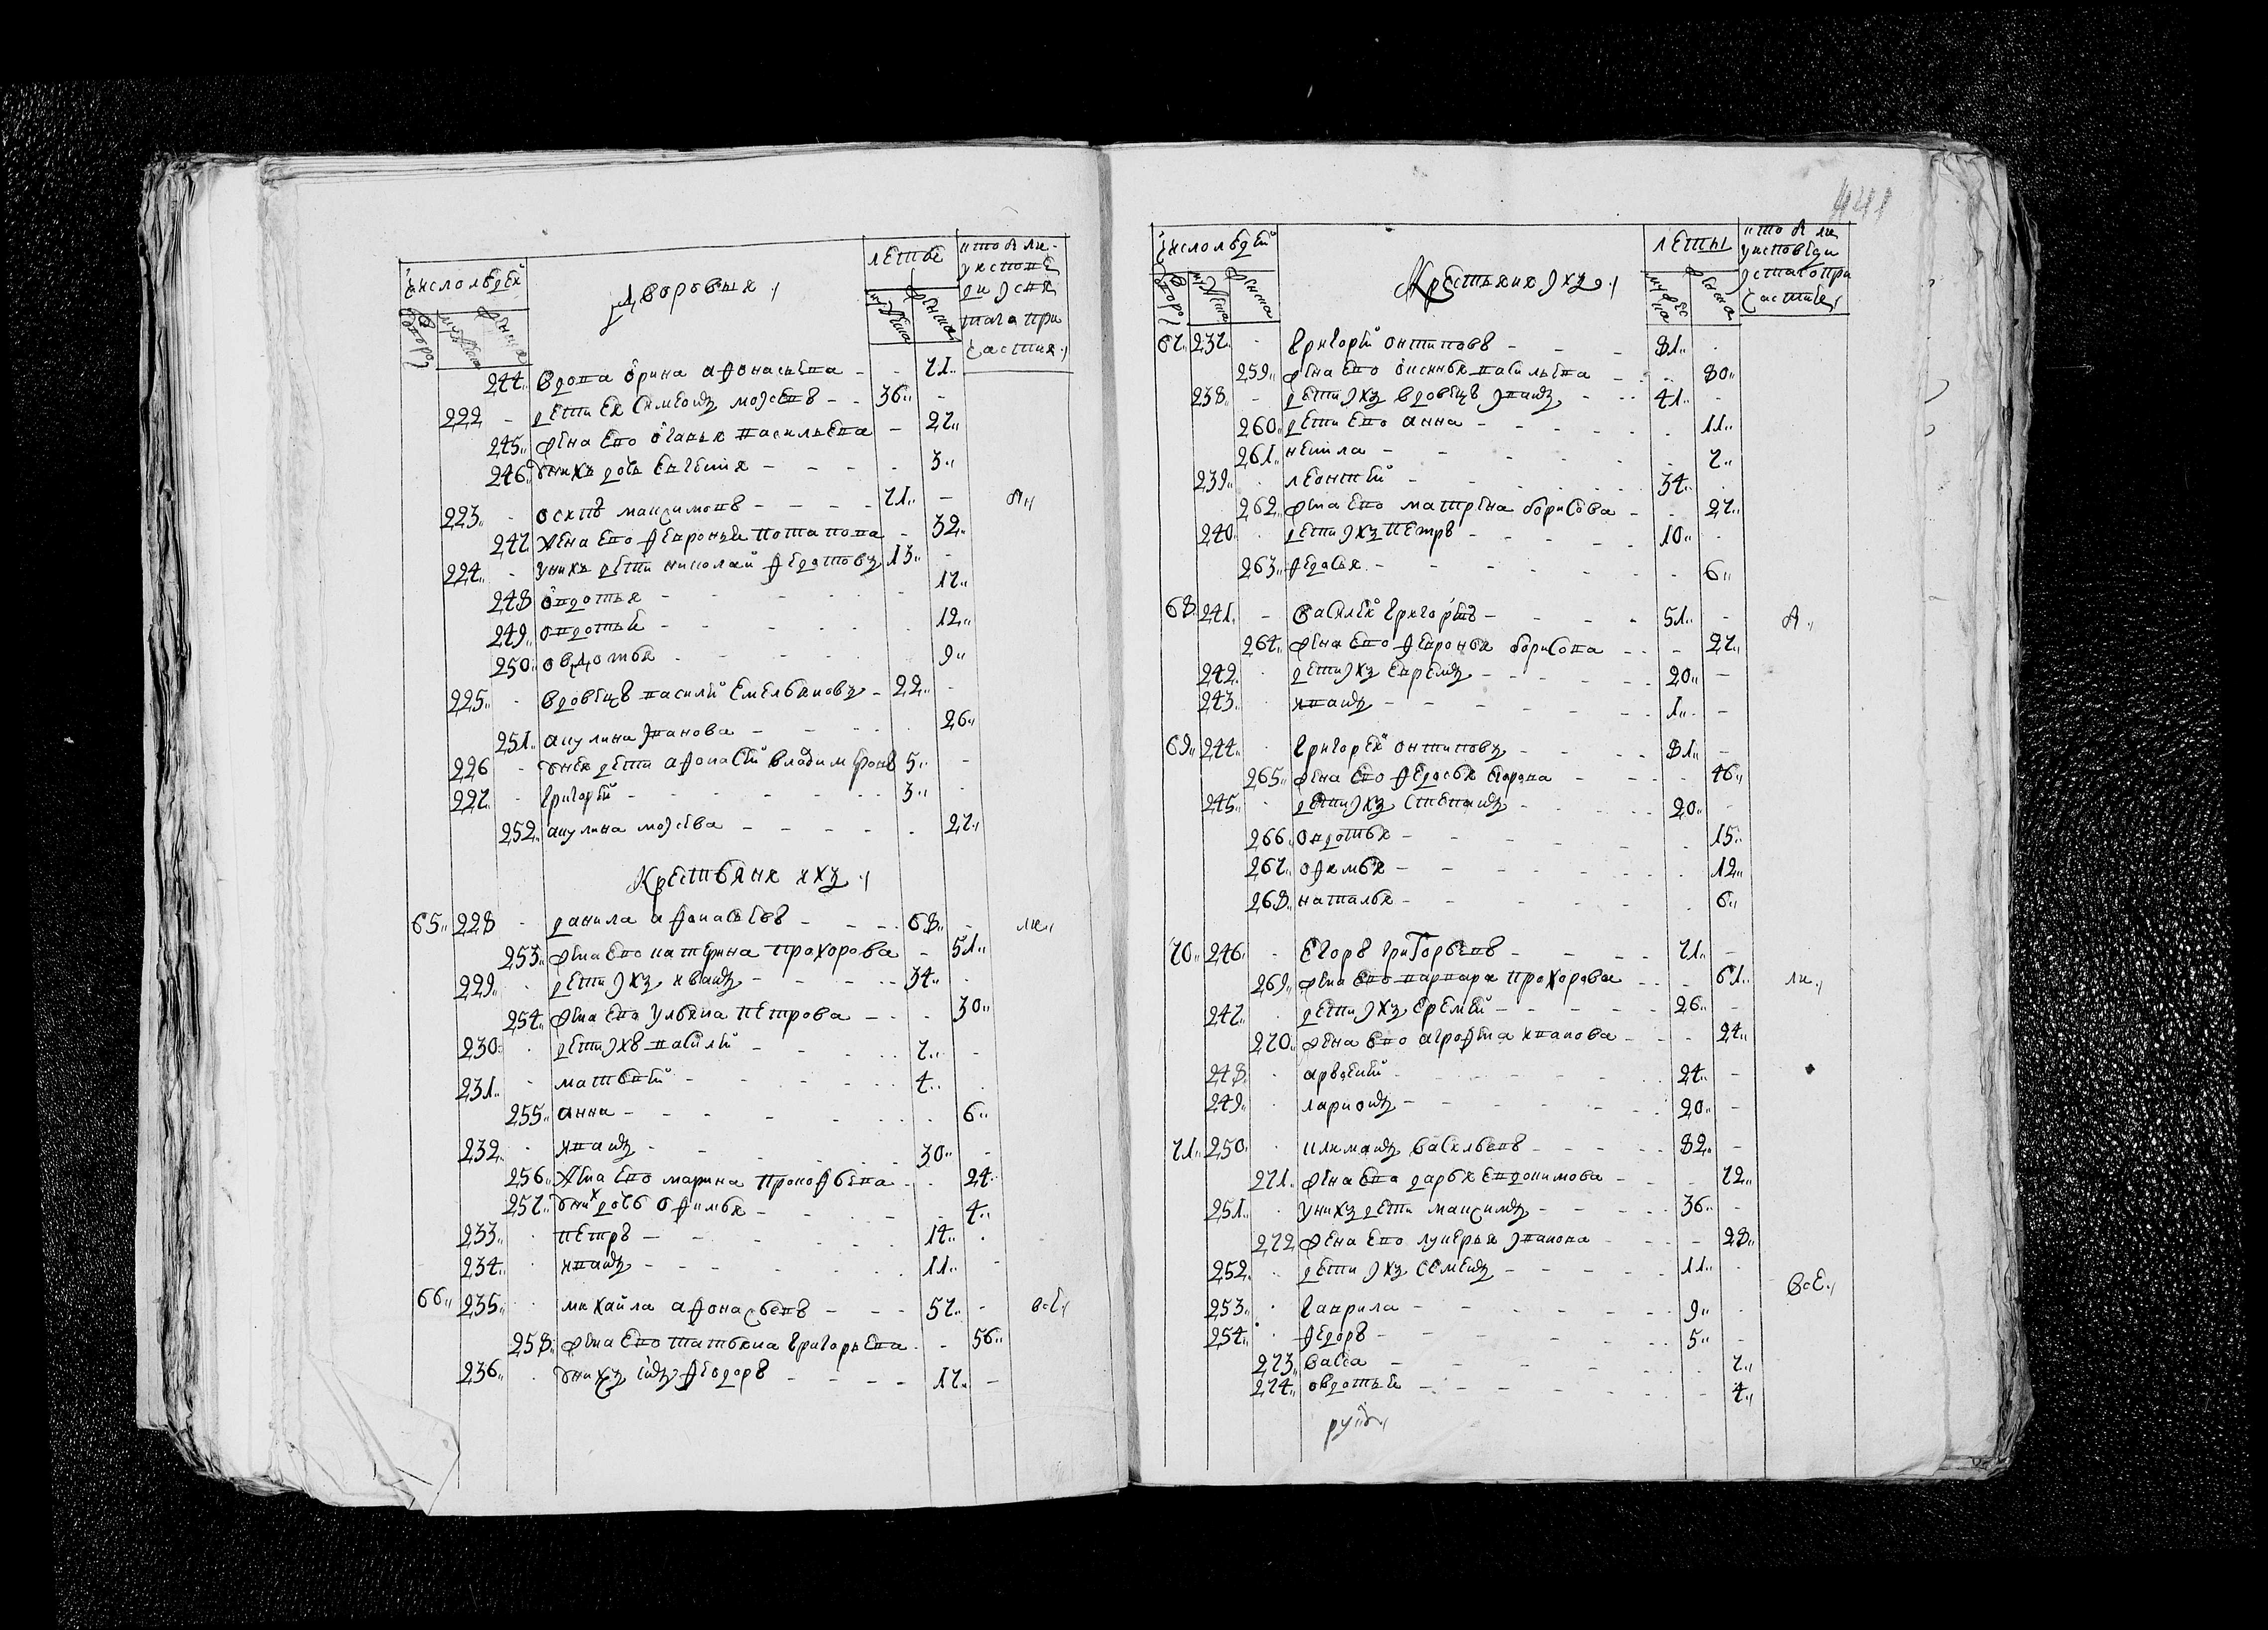 число людей
дворовъ
мужеска
женска
Дворовыя
леты
мужеска
женска
кто были
у исповеди и свя
таго при
частия
244 вдова орина афонасьева - 71
222 дети ея симеонъ мосеевъ - 36
245 жена ево - 27
246 у нихъ дочь евгения - 3
223 осипъ максимовъ - 71
247 жена ево феврония потапова - 32
224 у нихъ дети николай федотовъ 13
248 овдотья - 17
249 овдотья - 12
250 овдотья - 9
225 вдовецъ василий емельяновъ - 22
251 акулина иванова - 26
226 у нея дети афонасий владимеровъ 5
227 григорий - 3
252 акулина мосеева - 27
Крестьяня ихъ
65 228 данила афонасьевъ - 68
253 жена ево катерина прохорова - 51
229 дети ихъ иванъ - 34
254 жена ево ульяна петрова - 30
230 дети ихъ василий - 7
231 матвей - 4
255 анна - 6
232 иванъ - 30
256 жена ево марина прокофьева - 24
257 у них дочь офимья - 4
233 петръ - 14
234 иванъ - 11
66 235 михайла афонасьевъ - 57 все
258 жена ево татьяна григорьева - 56
236 у нихъ сынъ феодоръ - 17
441
число людей
дворовъ
мужеска
женска
Крестьяня ихъ
леты
мужеска
женска
кто были
у исповеди
и святаго при
частия
67 237 григорий онтиповъ - 81
259 жена ево аксинья васильева - 80
238 дети ихъ вдовецъ иванъ - 41
260 дети ево анна - 11
261 - 7
239 леонтий - 34
262 жена ево матрена борисова - 27
240 дети ихъ петръ - 10
263 федосья - 6
68 241 василей григорьевъ - 51
264 жена ево февронья борисова - 27
242 дети ихъ ефремъ - 20
243 иванъ - 1
69 244 григорей онтиповъ - 81
265 жена ево федосья егорова - 46
245 дети ихъ степанъ - 20
266 овдотья - 15
267 офимья - 12
268 наталья - 6
70 246 егоръ григорьевъ - 71
269 жена ево варвара прохорова - 61
247 дети ихъ еремей - 26
270 жена ево агрофена иванова - 24
248 арсений - 24
249 ларионъ - 20
71 250 климанъ васильевъ - 82
271 жена ева дарья евдокимова - 72
251 у нихъ дети максимъ - 36
272 жена ево лукерья иванова - 28
252 дети ихъ семенъ - 11
253 гаврила - 9 все
254 федоръ - 5
273 васса - 7
274 овдотья - 4